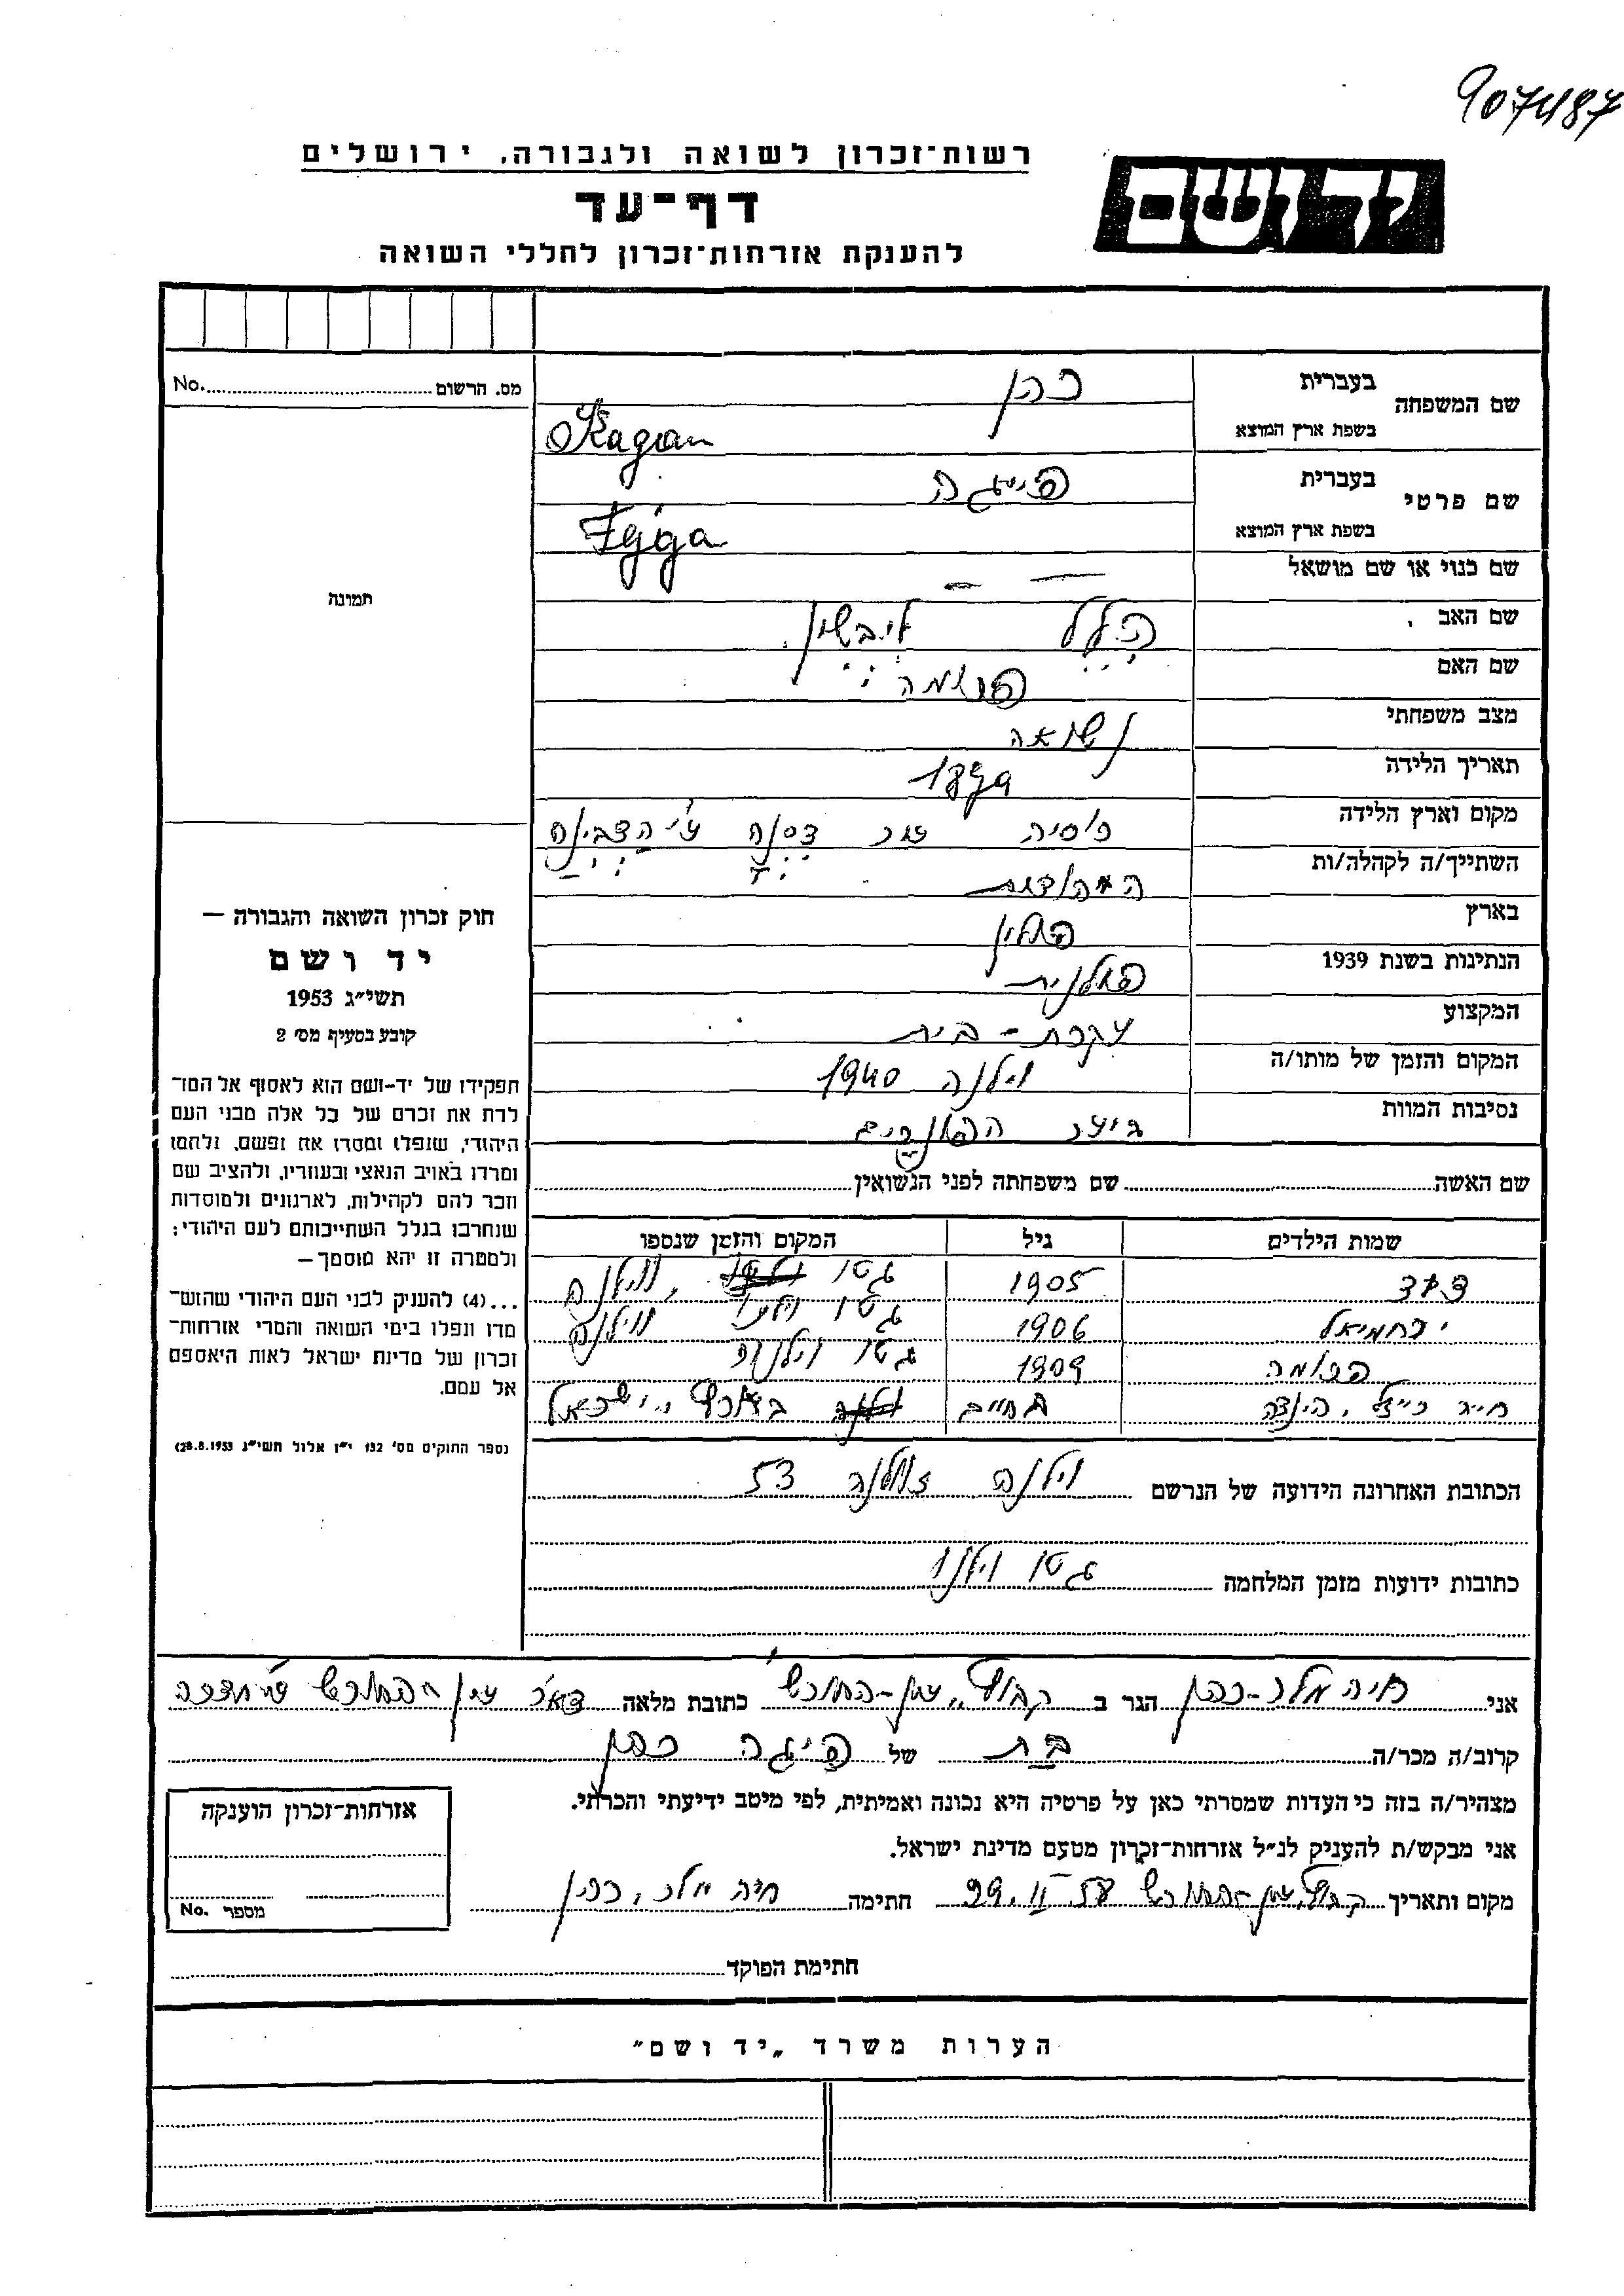 907487
רשות־זכרון לשואה ולגבורה, ירושלים
יד ושם
דף־עד
להענקת אזרחות־זכרון לחללי השואה
מס. הרשום No.
שם המשפחה בעברית כהן
בשפת ארץ המוצא Kagan
שם פרטי בעברית פייגה
בשפת ארץ המוצא Fejga
תמונה
שם כנוי או שם מושאל — —
שם האב הלל לייבשין
שם האם פרומה
מצב משפחתי נשואה
תאריך הלידה
מקום וארץ הלידה רוסיה
השתייך/ה לקהלה/ות
בארץ פולין
הנתינות בשנת 1939 פולנית
המקצוע עקרת-בית
המקום והזמן של מותו/ה וילנה 1940
נסיבות המוות ביער
שם האשה שם משפחתה לפני הנשואין
שמות הילדים גיל המקום והזמן שנספו
דוד 1905 גטו וילנה
ירחמיאל 1906 גטו וילנו וילנה
פרומה 1909 גטו וילנה
חיה רייזל, הינדה בחיים בארץ ישראל
הכתובת האחרונה הידועה של הנרשם וילנה 53
כתובות ידועות מזמן המלחמה גטו וילנו
חוק זכרון השואה והגבורה —
יד ושם
תשי״ג 1953
קובע בסעיף מס׳ 2
תפקידו של יד־ושם הוא לאסוף אל המו־
לדת את זכרם של כל אלה מבני העם
היהודי, שנפלו ומסרו את נפשם, נלחמו
ומרדו באויב הנאצי ובעוזריו, ולהציב שם
וזכר להם לקהילות, לארגונים ולמוסדות
שנחרבו בגלל השתייכותם לעם היהודי;
ולמטרה זו יהא מוסמך—
...(4) להעניק לבני העם היהודי שהוש־
מדו ונפלו בימי השואה והמרי אזרחות־
זכרון של מדינת ישראל לאות היאספם
אל עמם.
(ספר החוקים מס׳ 132 י״ז אלול תשי״ג 28.8.1953)
אני חיה מלר-כהן הגר ב קבוץ עין-החורש כתובת מלאה דאר עין החורש
קרוב/ה מכר/ה בת של פייגה כהן
מצהיר/ה בזה כי העדות שמסרתי כאן על פרטיה היא נכונה ואמיתית, לפי מיטב ידיעתי והכרתי.
אני מבקש/ת להעניק לנ״ל אזרחות־זכרון מטעם מדינת ישראל.
מקום ותאריך קבוץ עין-החורש חתימה חיה מלר, כהן
אזרחות־זכרון הוענקה
מספר No.
חתימת הפוקד
הערות משרד „יד ושם״